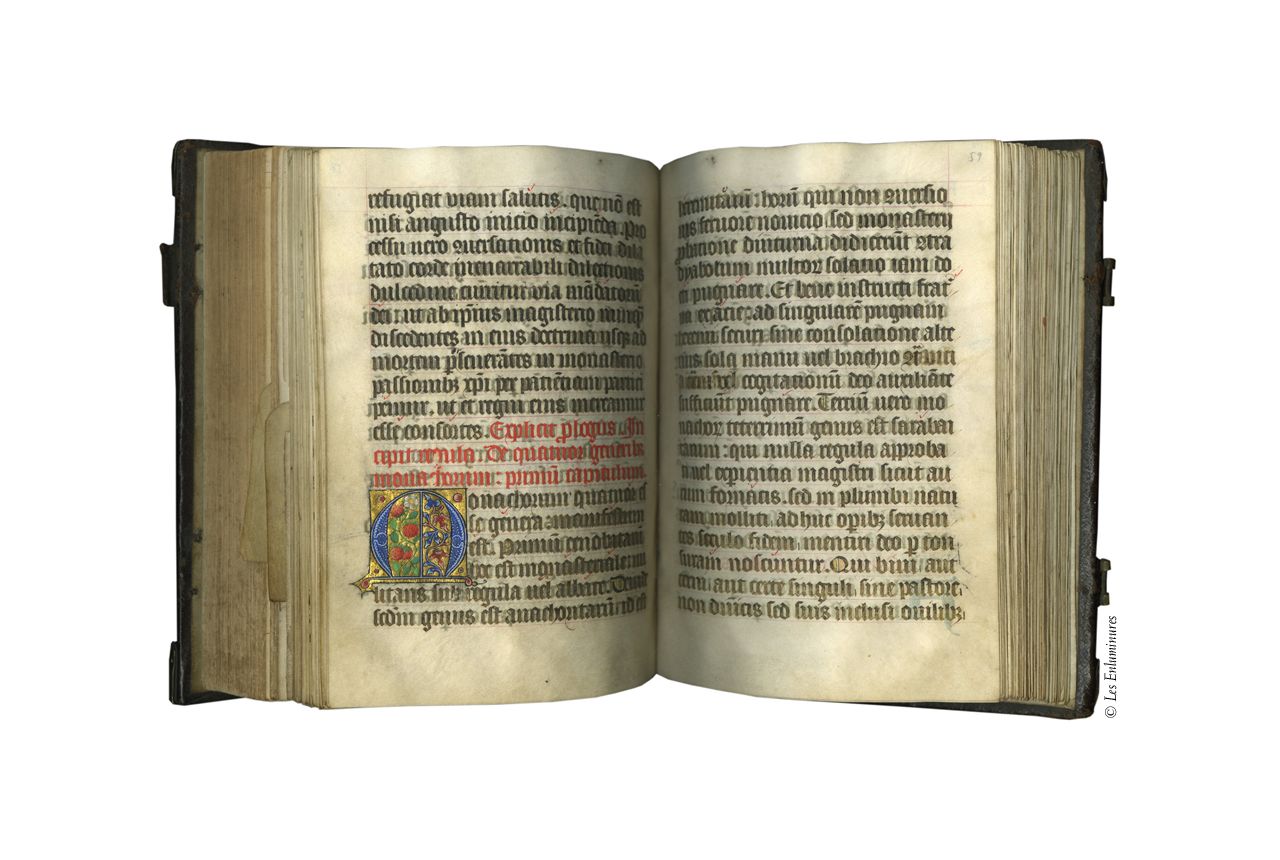 refugiat viam salutis. que nō est
nisi angusto inicio incipiēda. Pro
cessu uero ꝯuersationis et fidei dila
tato corde inenarrabili dilectionis
dulcedine curritur via mādatorū
dei: ut ab ipsius magisterio nunqꝫ
discedentes in eius doctrina usqꝫ ad
mortem pseuerātes in monasterio
passionibꝫ xpi per patienciam partici
pemur. ut et regni eius mereamur
esse consortes. Explicit plogus. In
cipit regula. De quatuor generibꝫ
monachorum: primū capitulum.
Monachorum quatuor es
se genera: manifestum
est. Primum cenobitarū
hoc est monasteriale: mi
litans sub regula uel abbate. Deinde
scdm genus est anachoritarū id est
59
heremitarū: horū qui non ꝯuersio
nis feruore nouicio sed monasterij
ꝓbatione diuturna didicerūt ꝯtra
dyabolum multorꝫ solatio iam do
cti pugnare. Et bene instructi frat
na ex acie: ad singularē pugnam
heremi securi sine consolatione alte
rius sola manu uel brachio ꝯtra viti
a carnis vel cogitationū deo auxiliāte
sufficiunt pugnare. Terciū uero mo
nachorꝫ teterrimū genus est sarabai
tarum: qui nulla regula approba
ti uel experientia magistri sicut au
rum fornacis. sed in plumbi natu
ram molliti. adhuc opibꝫ seruien
tes seculo fidem. mentiri deo p ton
suram noscuntur. Qui bini aut
terni aut certe singuli sine pastore.
non dnicis sed suis inclusi ouilibꝫ
© Les Enluminures